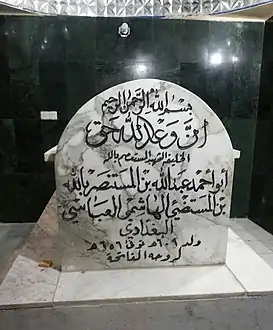 بسم الله الرحمن الرحيم
ان وعد الله حق
الخليفة الشهيد المستعصم بالله
أبو أحمد عبدالله بن المستنصر بالله
بن المستضئ الهاشمي العباسي
البغدادي
ولد ٦٠٩هـ توفي ٦٥٦هـ
لروحه الفاتحة